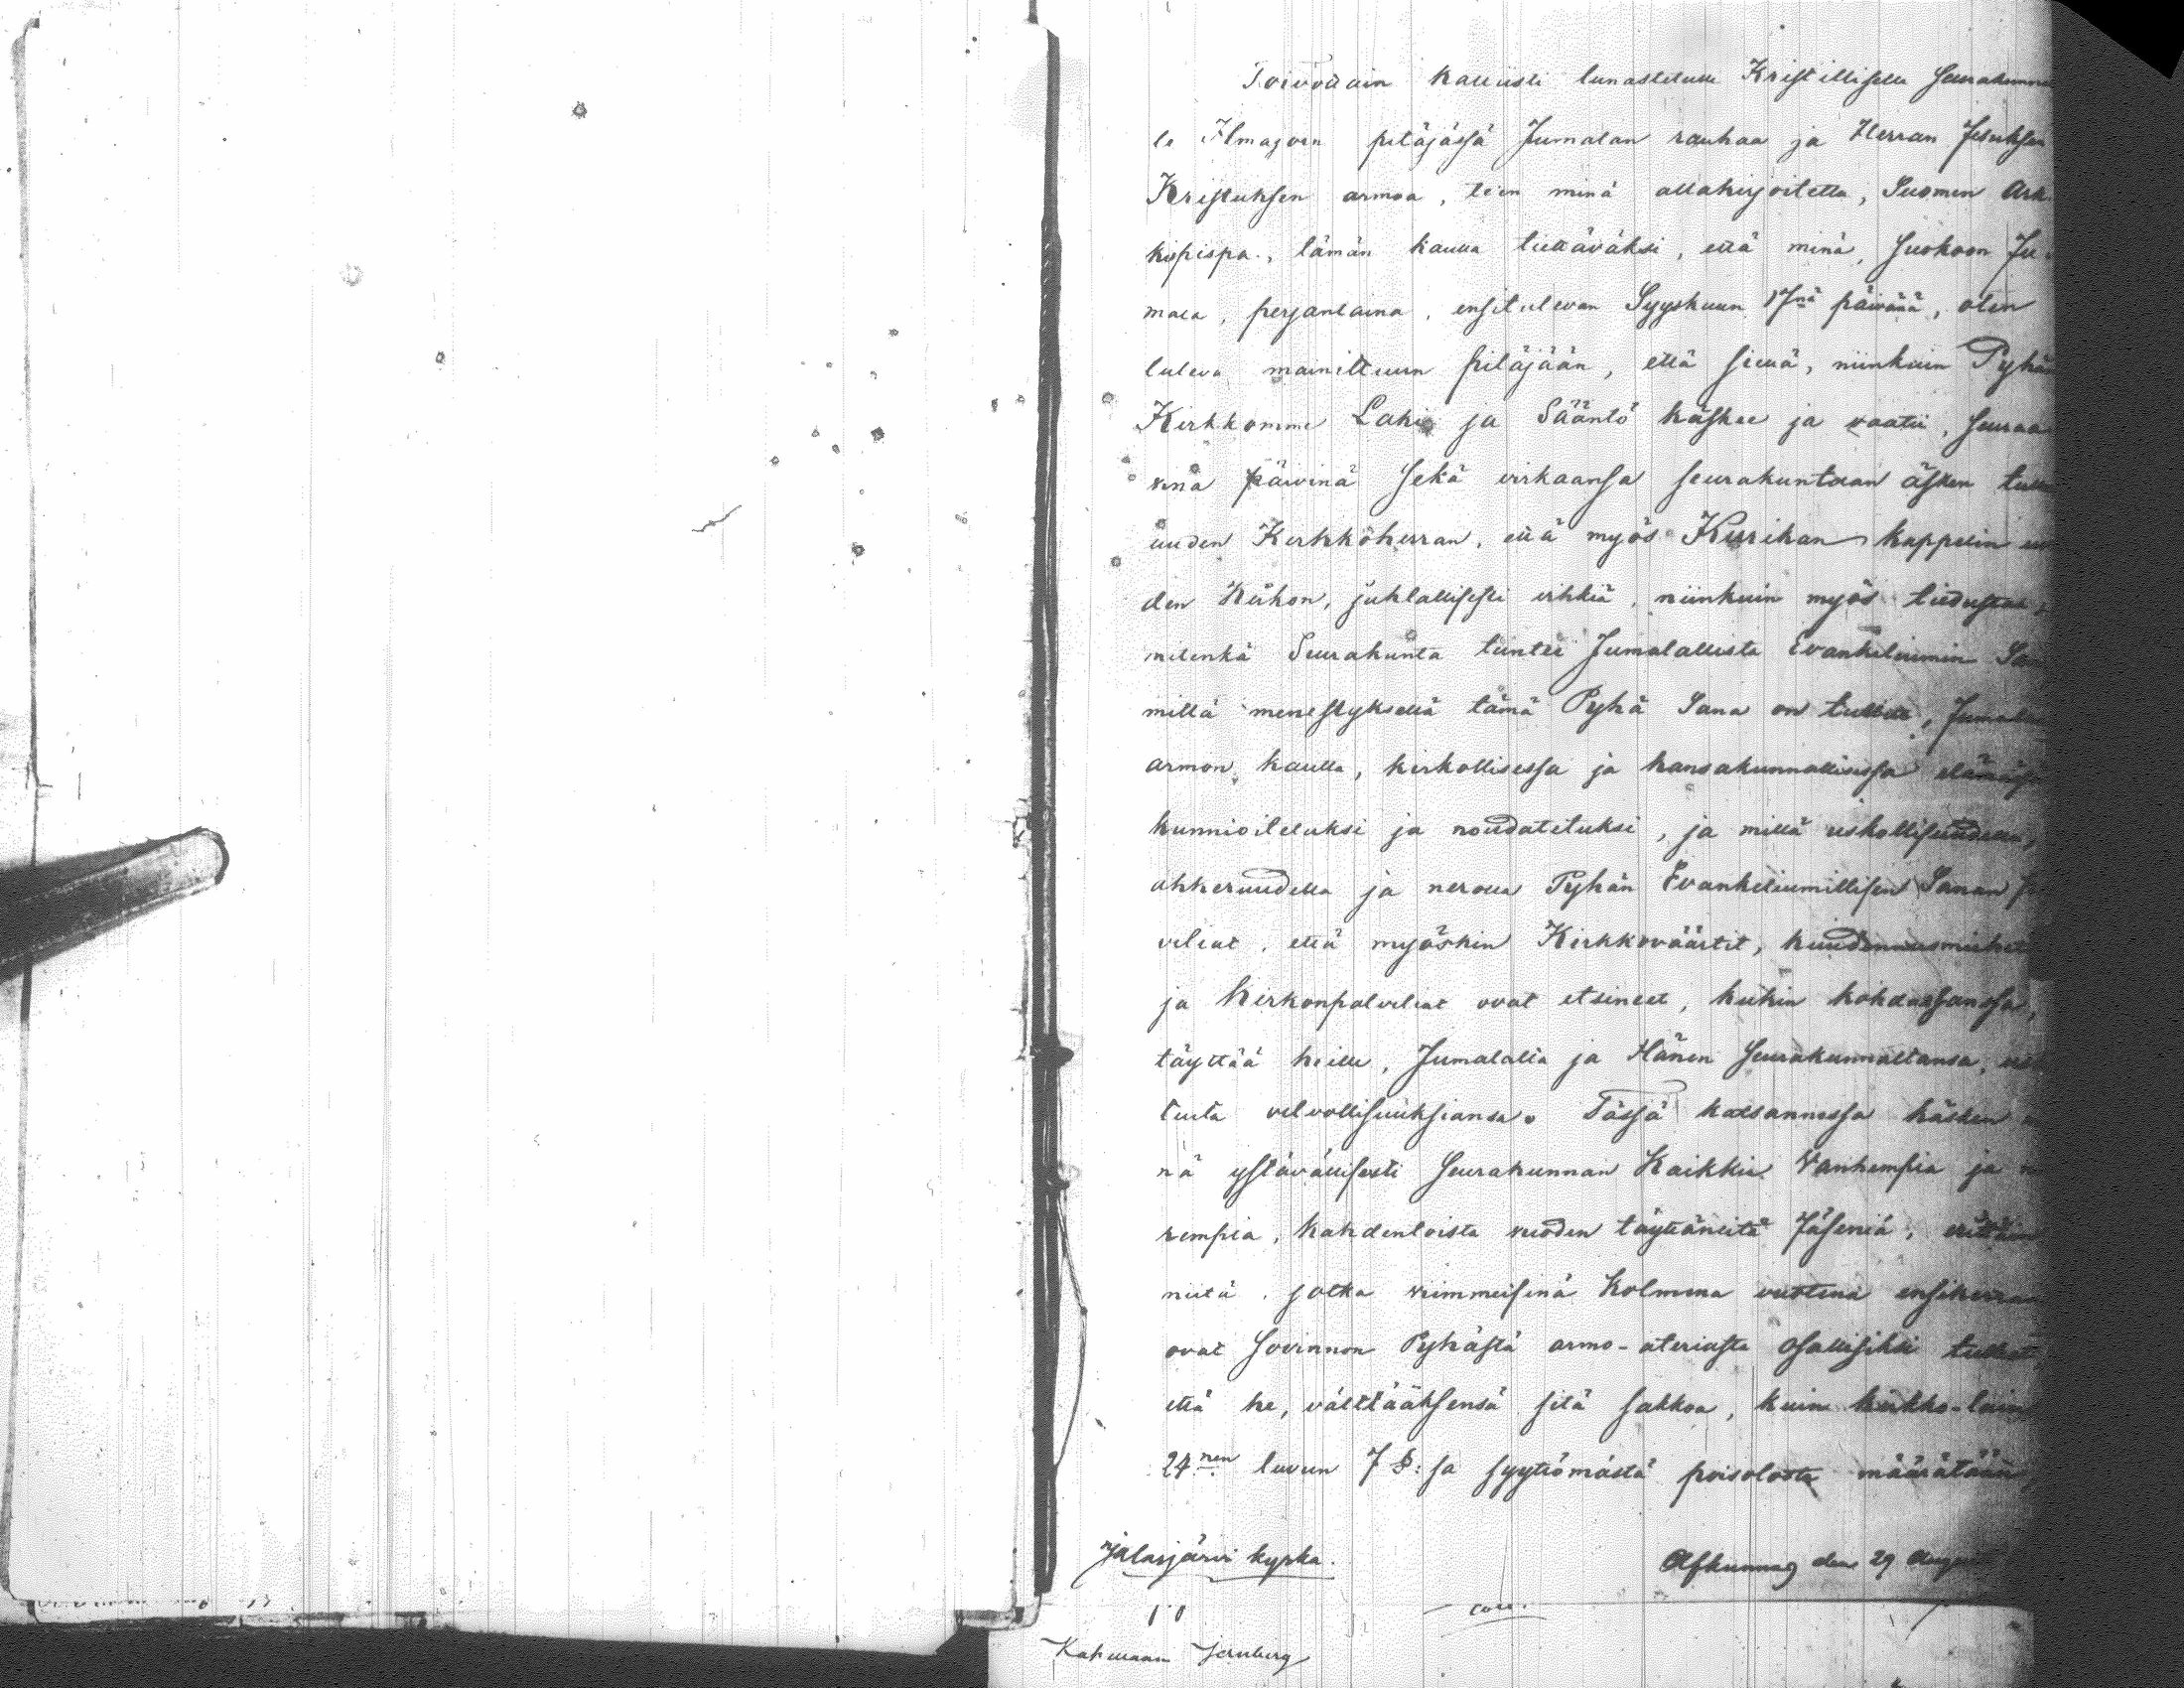 Toivottain kalliisti lunastetulle Kristilliselle Seurakunnal
le Ilmajoen pitäjässä Jumalan rauhaa ja Herran Jesuksen
Kristuksen armoa, teen minä allakirjoitettu, Suomen Ark
kipispa, tämän kautta tiettäväksi, että minä, suokoon Ju
mala, perjantaina, ensitulevan Syyskuun 17nä päivänä, olen
tuleva mainittuun pitäjään, että siellä, niinkuin Pyhän
Kirkkomme Laki ja Sääntö käskee ja vaatii, seuraa
vina päivinä sekä virkaansa seurakuntaan äsken tullen
uuden Kirkkoherran, että myös Kurikan kappelin uu
den Kirkon, juhlallisesti vihkiä, niinkuin myös tiedustaa
mitenkä Seurakunta tuntee Jumalallista Evankeliumin Sanaa
millä menestyksellä tämä Pyhä Sana on tullut, Jumalan
armon kautta, kirkollisessa ja kansakunnallisessa elämässä
kunnioitetuksi ja noudatetuksi, ja millä uskollisuudella,
ahkeruudella ja nerolla Pyhän Evankeliumillisen Sanan
veliat, että myöskin Kirkkoväärtit, kuudennusmiehet
ja Kirkonpalveliat ovat etsineet, kukin kohdassansa,
täyttää heille, Jumalalta ja Hänen Seurakunnaltansa, us
tuita velvollisuuksiansa. Tässä katsannossa käsken
nä ystävällisesti Seurakunnan Kaikkia Vanhempia ja
rempia, kahdentoista vuoden täyttäneitä Jäseniä, erittäin
niitä, jotka viimmeisinä Kolmena vuotena ensikerran
ovat Sovinnon Pyhästä armo-ateriasta osallisiksi tulleet,
että he, välttääksensä sitä sakkoa, kuin kirkko-lain
24nen luvun 7 §:sa syyttömästä poisolosta määrätään,
Jalasjärvi kyrka.
Afkunnas den 29 August
Kahmaan Jernberg